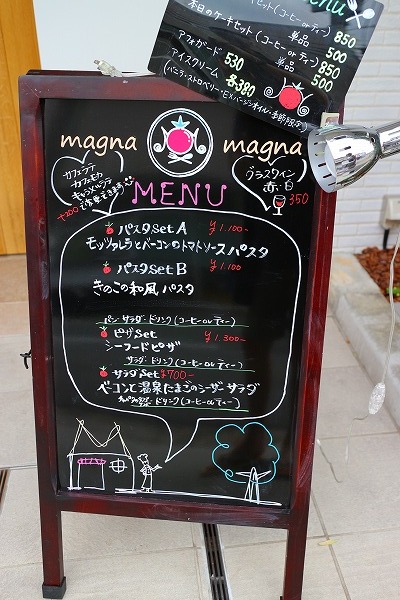 Menu
セット(コーヒーorティー) 850
本日のケーキセット(コーヒーorティー) 850
単品 500
アフォガード 530 単品 500
アイスクリーム 各380
(バニラ・ストロベリー・EXバージンオイル・季節限定)
magna magna
カフェラテ
カフェモカ
キャラメルラテ
+200で変更できます
グラスワイン
赤・白
350
MENU
パスタSet A ¥1.100-
モッツァレラとベーコンのトマトソースパスタ
パスタSet B ¥1.100
きのこの和風パスタ
パン・サラダ・ドリンク(コーヒーorティー)
ピザSet ¥1.300-
シーフードピザ
サラダ・ドリンク(コーヒーorティー)
サラダSet ¥700-
ベーコンと温泉たまごのシーザーサラダ
ドリンク(コーヒーorティー)